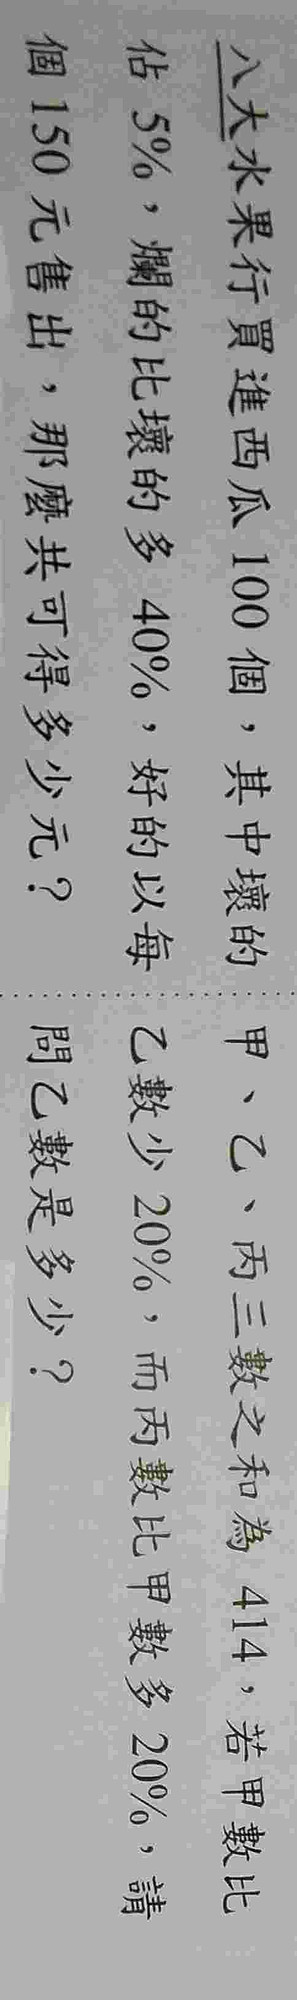 八大水果行買進西瓜 100 個，其中壞的
佔 5%，爛的比壞的多 40%，好的以每
個 150 元售出，那麼共可得多少元？
甲、乙、丙三數之和為 414，若甲數比
乙數少 20%，而丙數比甲數多 20%，請
問乙數是多少？